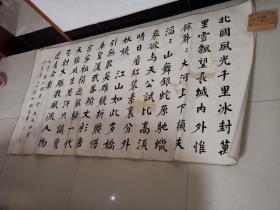 北國風光千里冰封萬
里雪飄望長城內外惟
餘莽〻大河上下頓失
滔〻山舞銀蛇原馳蠟
象欲與天公試比高須
晴日看紅裝素裹分外
妖嬈江山如此多嬌
引無數英雄競折腰惜
秦皇漢武略輸文彩唐
宗宋祖稍遜風騷一代
天驕成吉思汗只識彎
弓射大雕俱往矣數風流人物
還看今朝